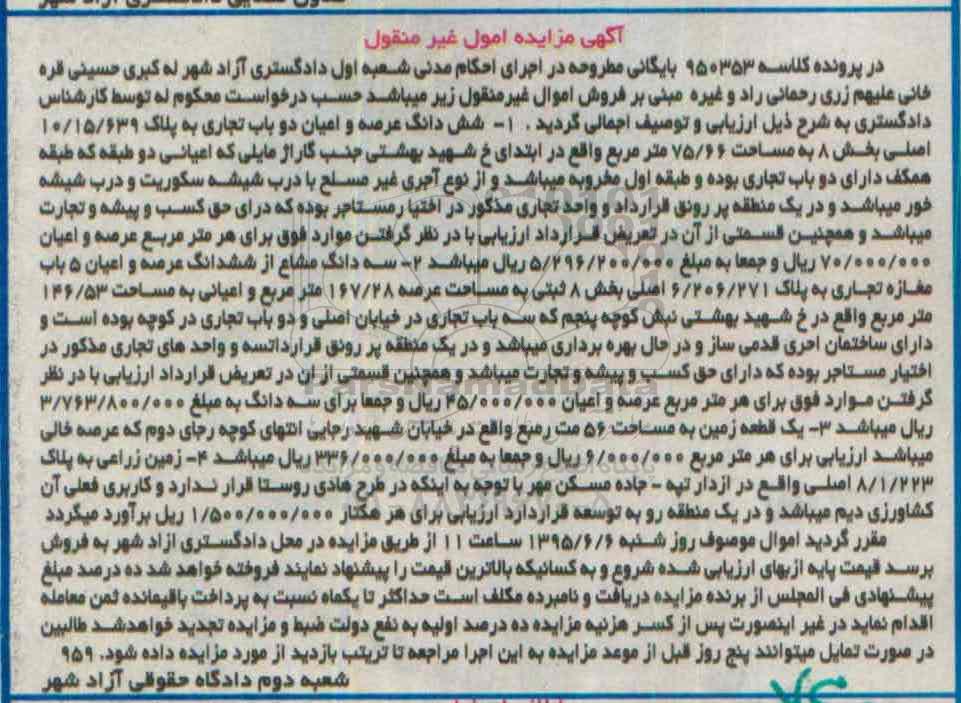 آگهی مزایده امول غیر منقول
در پرونده کلاسه ۹۵۰۳۵۳ بایگانی مطروحه در اجرای احکام مدنی شعبه اول دادگستری آزاد شهر له کبری حسینی قره
خانی علیهم زری رحمانی راد و غیره مبنی بر فروش اموال غیرمنقول زیر میباشد حسب درخواست محکوم له توسط کارشناس
دادگستری به شرح ذیل ارزیابی و توصیف اجمالی گردید . ۱- شش دانگ عرصه و اعیان دو باب تجاری به پلاک ۱۰/۱۵/۶۳۹
اصلی بخش ۸ به مساحت ۷۵/۶۶ متر مربع واقع در ابتدای خ شهید بهشتی جنب گاراژ مایلی که اعیانی دو طبقه که طبقه
همکف دارای دو باب تجاری بوده و طبقه اول مخروبه میباشد و از نوع آجری غیر مسلح با درب شیشه سکوریت و درب شیشه
خور میباشد و در یک منطقه پر رونق قرارداد و واحد تجاری مذکور در اختیا رمستاجر بوده که درای حق کسب و پیشه و تجارت
میباشد و همچنین قسمتی از آن در تعریض قرارداد ارزیابی با در نظر گرفتن موارد فوق برای هر متر مربع عرصه و اعیان
۷۰/۰۰۰/۰۰۰ ریال و جمعا به مبلغ ۵/۲۹۶/۲۰۰/۰۰۰ ریال میباشد ۲- سه دانگ مشاع از ششدانگ عرصه و اعیان ۵ باب
مغازه تجاری به پلاک ۶/۲۰۶/۲۷۱ اصلی بخش ۸ ثبتی به مساحت عرصه ۱۶۷/۲۸ متر مربع و اعیانی به مساحت ۱۴۶/۵۳
متر مربع واقع در خ شهید بهشتی نبش کوچه پنجم که سه باب تجاری در خیابان اصلی و دو باب تجاری در کوچه بوده است و
دارای ساختمان اجری قدمی ساز و در حال بهره برداری میباشد و در یک منطقه پر رونق قرارداتسه و واحد های تجاری مذکور در
اختیار مستاجر بوده که دارای حق کسب و پیشه و تجارت میباشد و همچنین قسمتی از ان در تعریض قرارداد ارزیابی با در نظر
گرفتن موارد فوق برای هر متر مربع عرصه و اعیان ۴۵/۰۰۰/۰۰۰ ریال و جمعا برای سه دانگ به مبلغ ۳/۷۶۳/۸۰۰/۰۰۰
ریال میباشد ۳- یک قطعه زمین به مساحت ۵۶ مت رمبع واقع در خیابان شهید رجایی انتهای کوچه رجای دوم که عرصه خالی
میباشد ارزیابی برای هر متر مربع ۶/۰۰۰/۰۰۰ ریال و جمعا به مبلغ ۳۳۶/۰۰۰/۰۰۰ ریال میباشد ۴- زمین زراعی به پلاک
۸/۱/۲۲۳ اصلی واقع در ازدار تپه - جاده مسکن مهر با توجه به اینکه در طرح هادی روستا قرار ندارد و کاربری فعلی آن
کشاورزی دیم میباشد و در یک منطقه رو به توسعه قراردارد ارزیابی برای هر هکتار ۱/۵۰۰/۰۰۰/۰۰۰ ریل برآورد میگردد
مقرر گردید اموال موصوف روز شنبه ۱۳۹۵/۶/۶ ساعت ۱۱ از طریق مزایده در محل دادگستری ازاد شهر به فروش
برسد قیمت پایه ازبهای ارزیابی شده شروع و به کسانیکه بالاترین قیمت را پیشنهاد نمایند فروخته خواهد شد ده درصد مبلغ
پیشنهادی فی المجلس از برنده مزایده دریافت و نامبرده مکلف است حداکثر تا یکماه نسبت به پرداخت باقیمانده ثمن معامله
اقدام نماید در غیر اینصورت پس از کسر هزنیه مزایده ده درصد اولیه به نفع دولت ضبط و مزایده تجدید خواهدشد طالبین
در صورت تمایل میتوانند پنج روز قبل از موعد مزایده به این اجرا مراجعه تا تریتب بازدید از مورد مزایده داده شود. ۹۵۹
شعبه دوم دادگاه حقوقی آزاد شهر